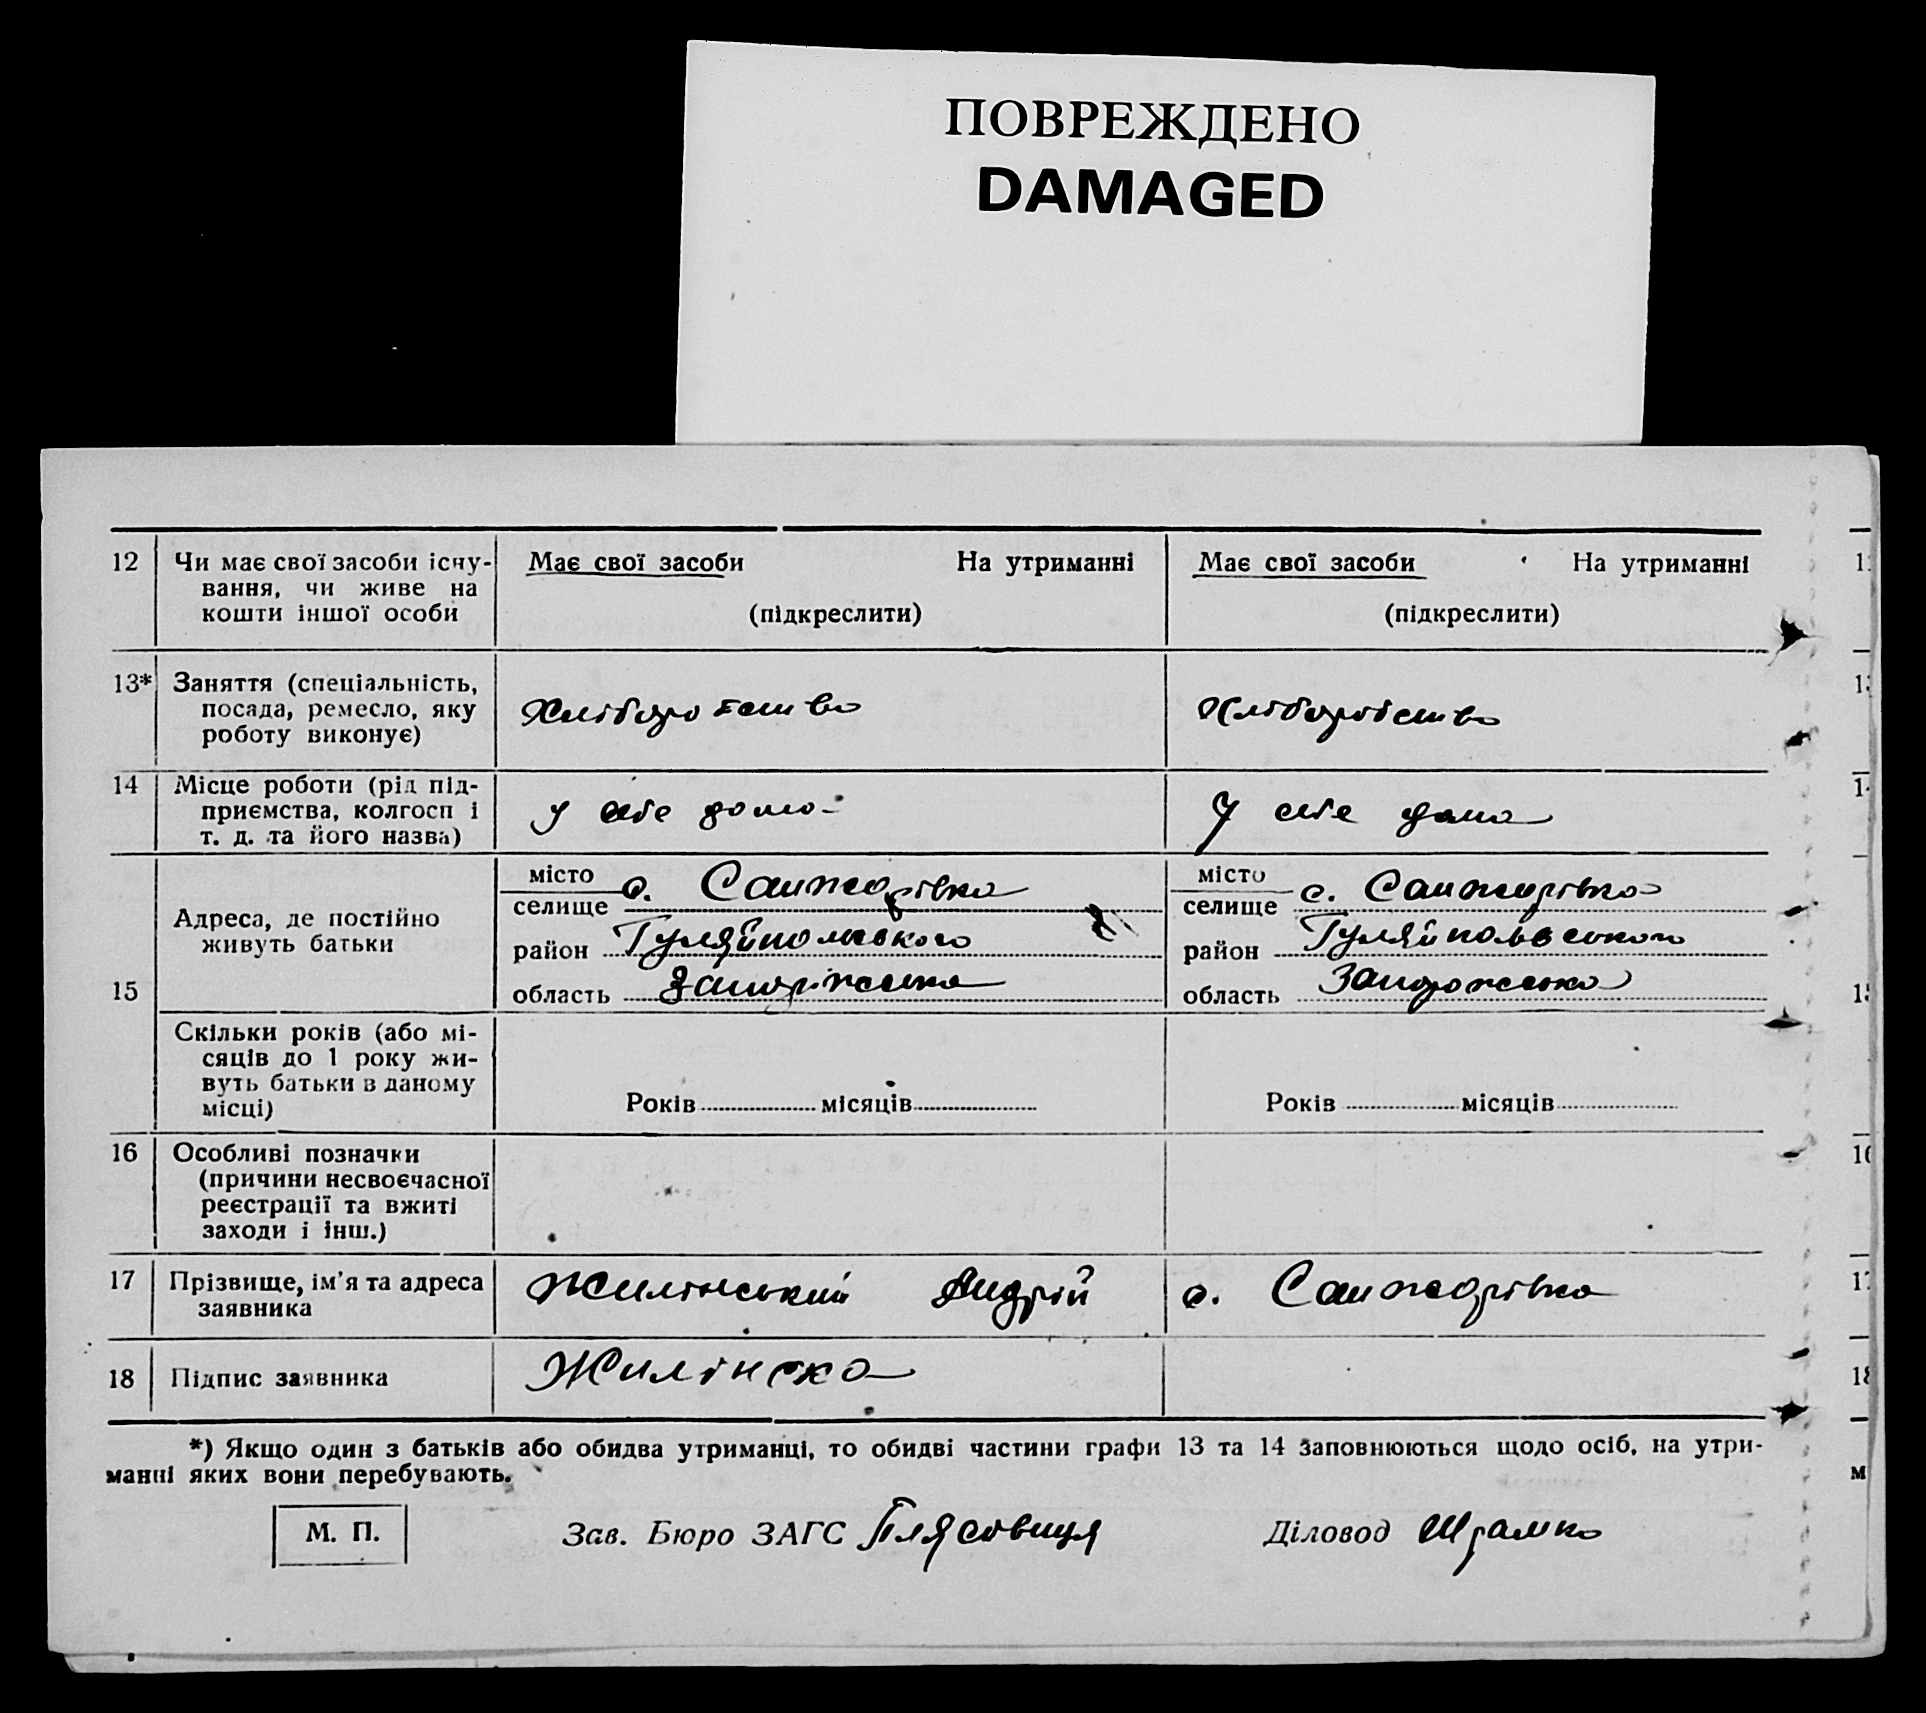 ПОВРЕЖДЕНО
DAMAGED
12 Чи має свої засоби існу- Має свої засоби На утриманні Має свої засоби На утриманні
вання, чи живе на
кошти іншої особи (підкреслити) (підкреслити)
13* Заняття (спеціальність,
посада, ремесло, яку Хліборобство Хліборобство
роботу виконує)
14 Місце роботи (рід під-
приємства, колгосп і у себе дома У себе дома
т. д. та його назва)
місто с. Санжарівка місто с. Санжарівка
селище селище
Адреса, де постійно
живуть батьки район Гуляйпольского район Гуляйпольського
15 область Запоріжська область Запорожська
Скільки років (або мі-
сяців до 1 року жи-
вуть батьки в даному
місці) Років місяців Років місяців
16 Особливі позначки
(причини несвоєчасної
реєстрації та вжиті
заходи і інш.)
17 Прізвище, ім’я та адреса Жилінський Андрій с. Санжарівка
заявника
18 Підпис заявника Жилінско
*) Якщо один з батьків або обидва утриманці, то обидві частини графи 13 та 14 заповнюються щодо осіб, на утри-
манні яких вони перебувають.
М. П. Зав. Бюро ЗАГС Діловод Шрамко